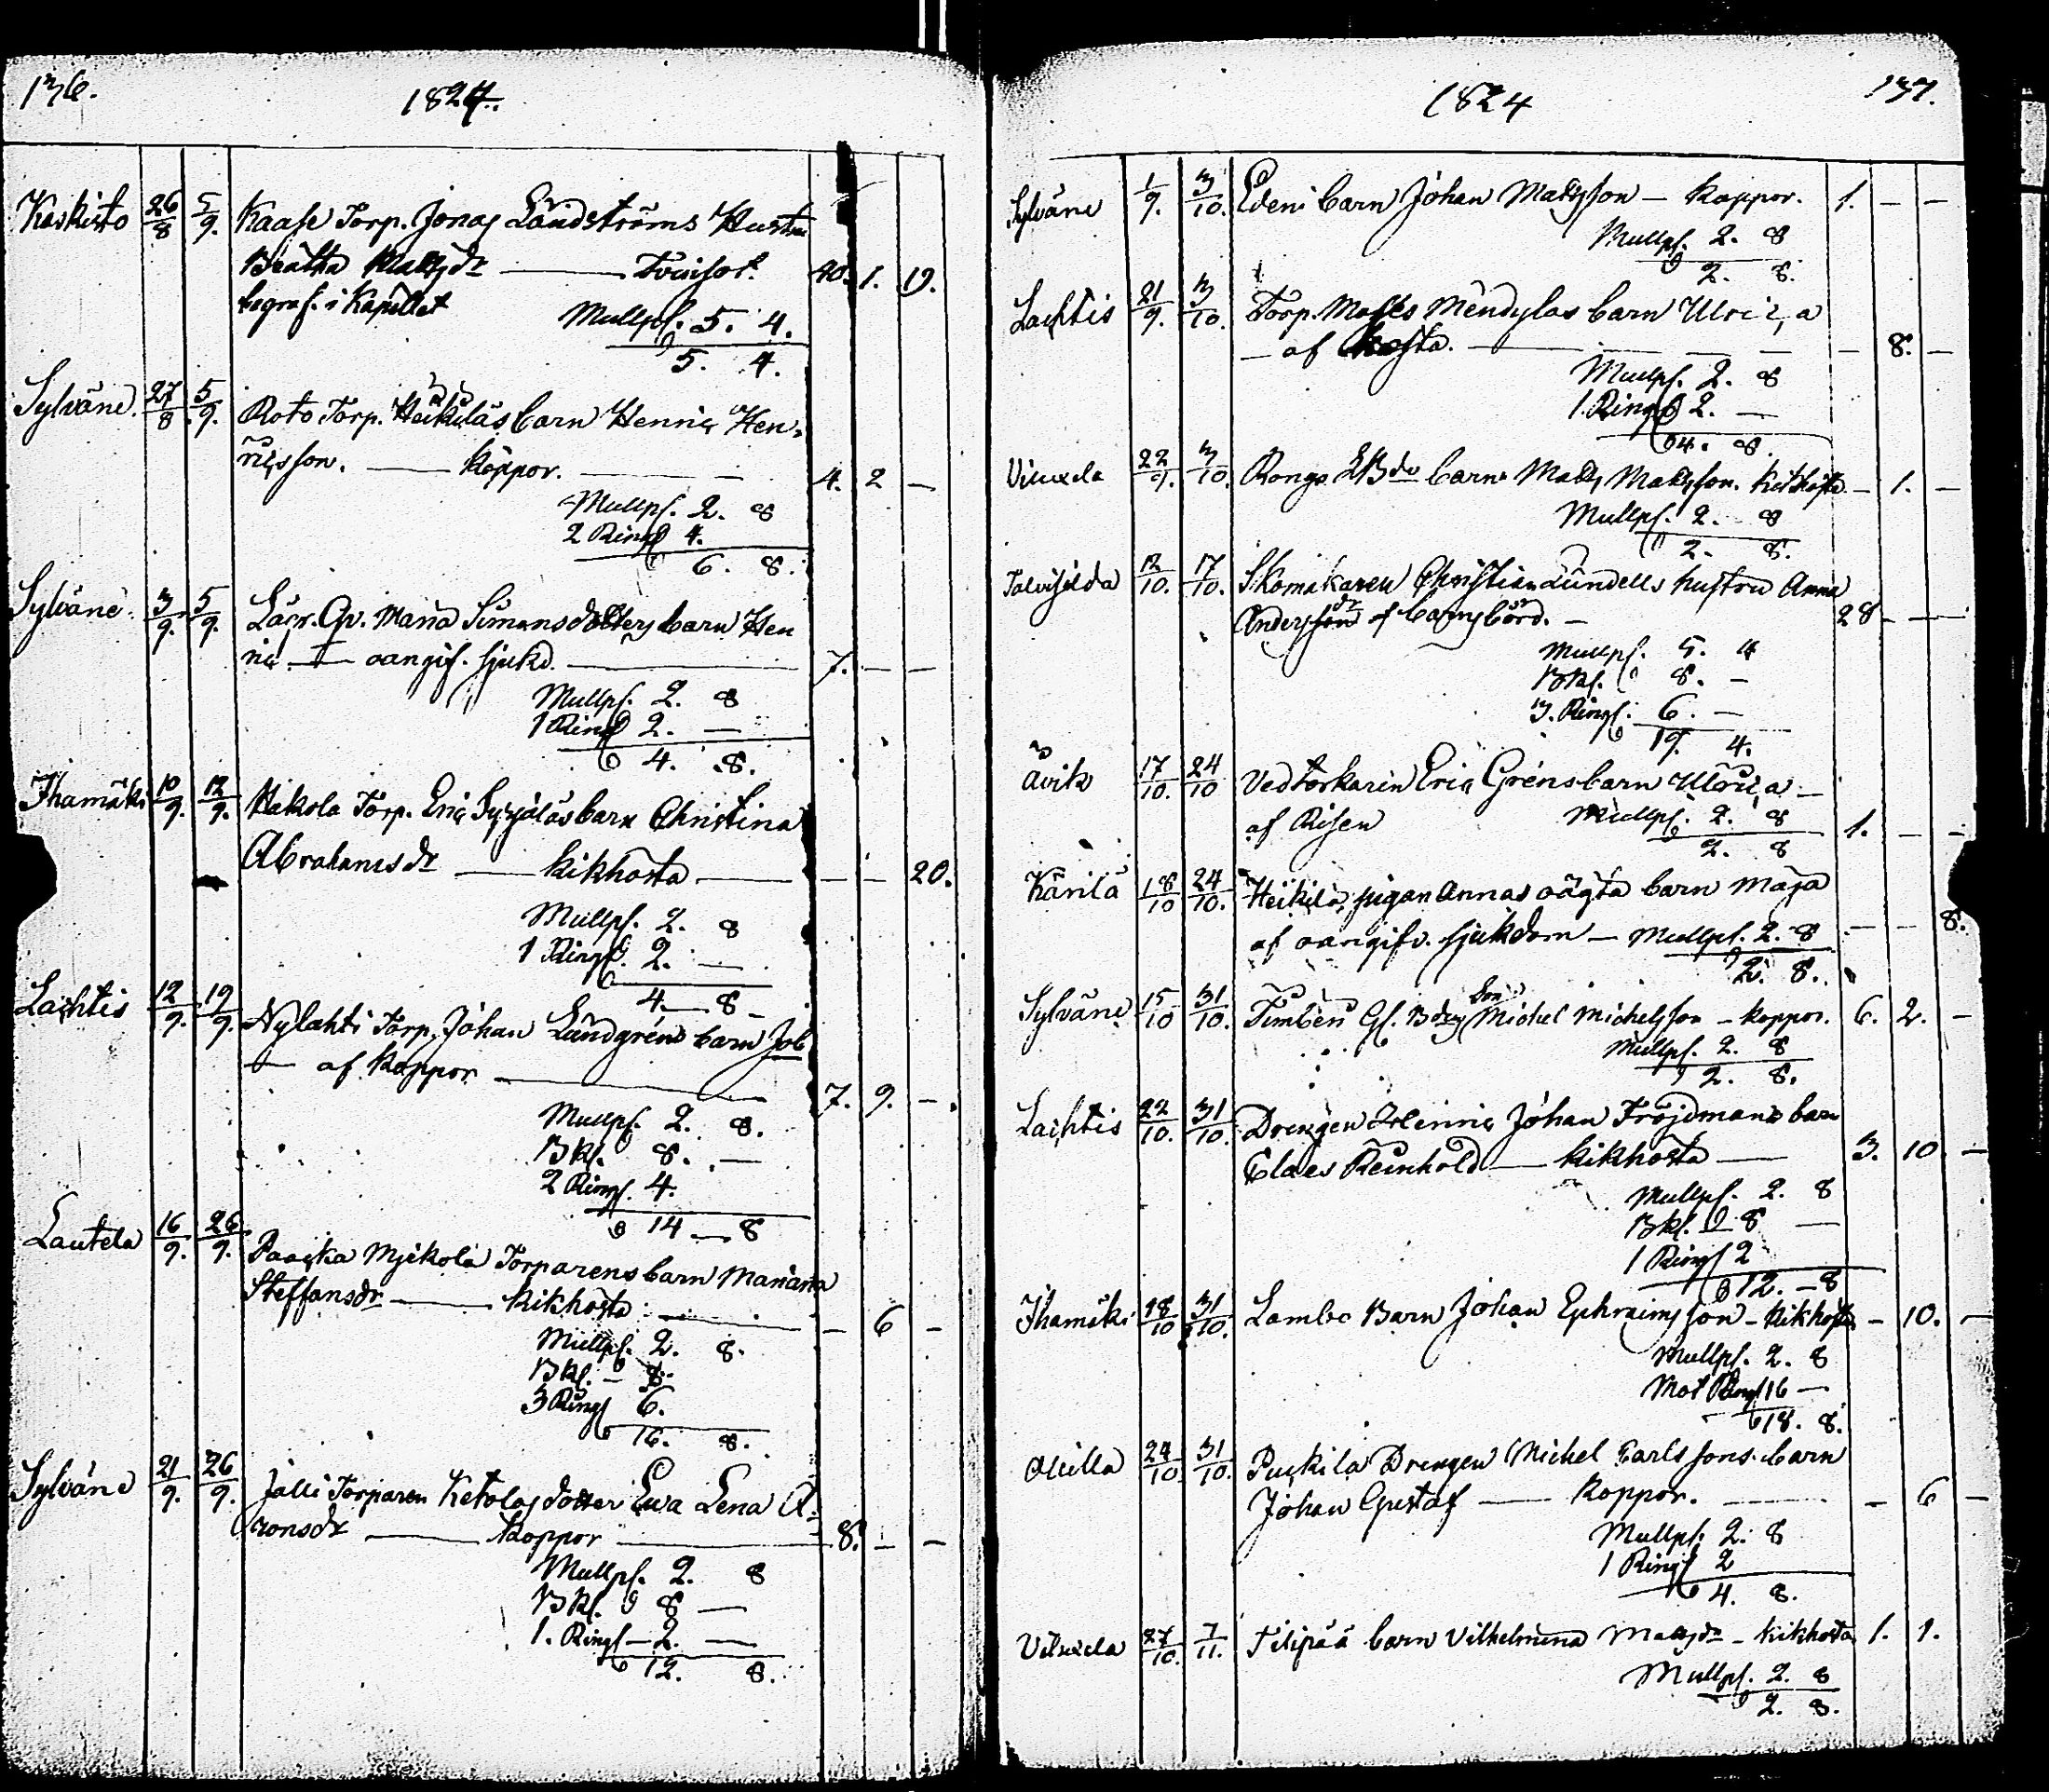 136.
1824.
Kaskisto 26/8 5/9. Kaase Torp. Jonas Landströms Hustru
Beatha Mattsdr — Tvinsot. 40. 1. 19.
begraf. i Kapellet Mullpg. 5. 4.
5. 4.
Sylväne. 27/8. 5/9. Roto Torp. Heikiläs barn Henric Hen-
ricsson. — Koppor. — 4. 2 —
Mullpg. 2. 8
2 Ring 4.
6. 8.
Sylväne 3/9. 5/9. Maria Simonsdotters barn Hen
ric — oangif. sjukd. — 7. — —
Mullpg. 2. 8
1 Ring 2. —
4. 8.
Ihamäki 10/9. 12/9. Hakola Torp. Eric barn Christina
Abrahamsdr — Kikhosta — — — 20.
Mullpg. 2. 8
1 Ringg. 2. —
4. — 8 —
Lachtis 12/9. 19/9. Nylahti Torp. Johan Landgréns barn Job
— af Koppor — 7. 9. —.
Mullpg. 2. 8.
Bkl. 8. —
2 Ringg. 4.
14 — 8
Lautela 16/9. 26/9. Torparens barn Mariana
Steffansdr — Kikhosta — — 6 —
Mullpg. 2. 8.
Bkl. — 8.
3 Ringg 6.
16. 8.
Sylväne 21/9. 26/9. Jalli Torparen Ketolas dotter Ewa Lena A-
ronsdr — Koppor — 8. — —
Mullpg. 2. 8
Bkl. 8 —
1. Ringg — 2. —
12. 8.
1824
137.
Sylväne 1/9. 3/10. Edeni barn Johan Matsson — Koppor. 1. — —
Mullpg. 2. 8
2. 8.
Lachtis 21/9. 3/10. Torp. Mattes Mendylas barn Ulrica
— af Hosta. — — 8. —
Mullpg. 2. 8
1. Ringg 2. —
4. 8.
22/9. 3/10. Rongo barn Matts Matsson. Kikhosta — 1. —
Mullpg. 2. 8
2. 8.
Talvisilda 12/10. 17/10. Skomakaren Christian Lundells hustru Anna
Andersdr af barnsbörd. — 28 — —
Mullpg. 5. 4
Bkl. 8. —
3. Ringg. 6. —
19. 4.
Åvik 17/10. 24/10 Eric Gréns barn Ulrica —
af Risen Mullpg. 2. 8 1. — —
2. 8
Kärilä 18/10 24/10. Heikilä, pigan Annas oägta barn Maja
af oangifv. sjukdom — Mullpg. 2. 8 — — 8.
2. 8.
Sylväne 15/10 31/10. Timberi Son Michel Michelsson — Koppor. 6. 2. —
Mullpg. 2. 8
2. 8.
Lachtis 22/10. 31/10. Drengen Henric Johan Fröjdmans barn
Claes Reinhold — Kikhosta — 3. 10 —
Mullpg. 2. 8
Bkl. 8 —
1 Ringg 2
12. — 8
Ihamäki 18/10 31/10. Lambo Barn Johan Ephraimsson — Kikhosta — 10. —
Mullpg. 2. 8
Ringg 16 —
18. 8.
Ollilla 24/10. 31/10. Drengen Michel Carlssons barn
Johan Gustaf — Koppor. — — 6 —
Mullpg. 2. 8
1 Ringg 2
4. 8.
27/10. 7/11. Filipää barn Vilhelmina Mattsdr — Kikhosta 1. 1.
Mullpg. 2. 8
2. 8.